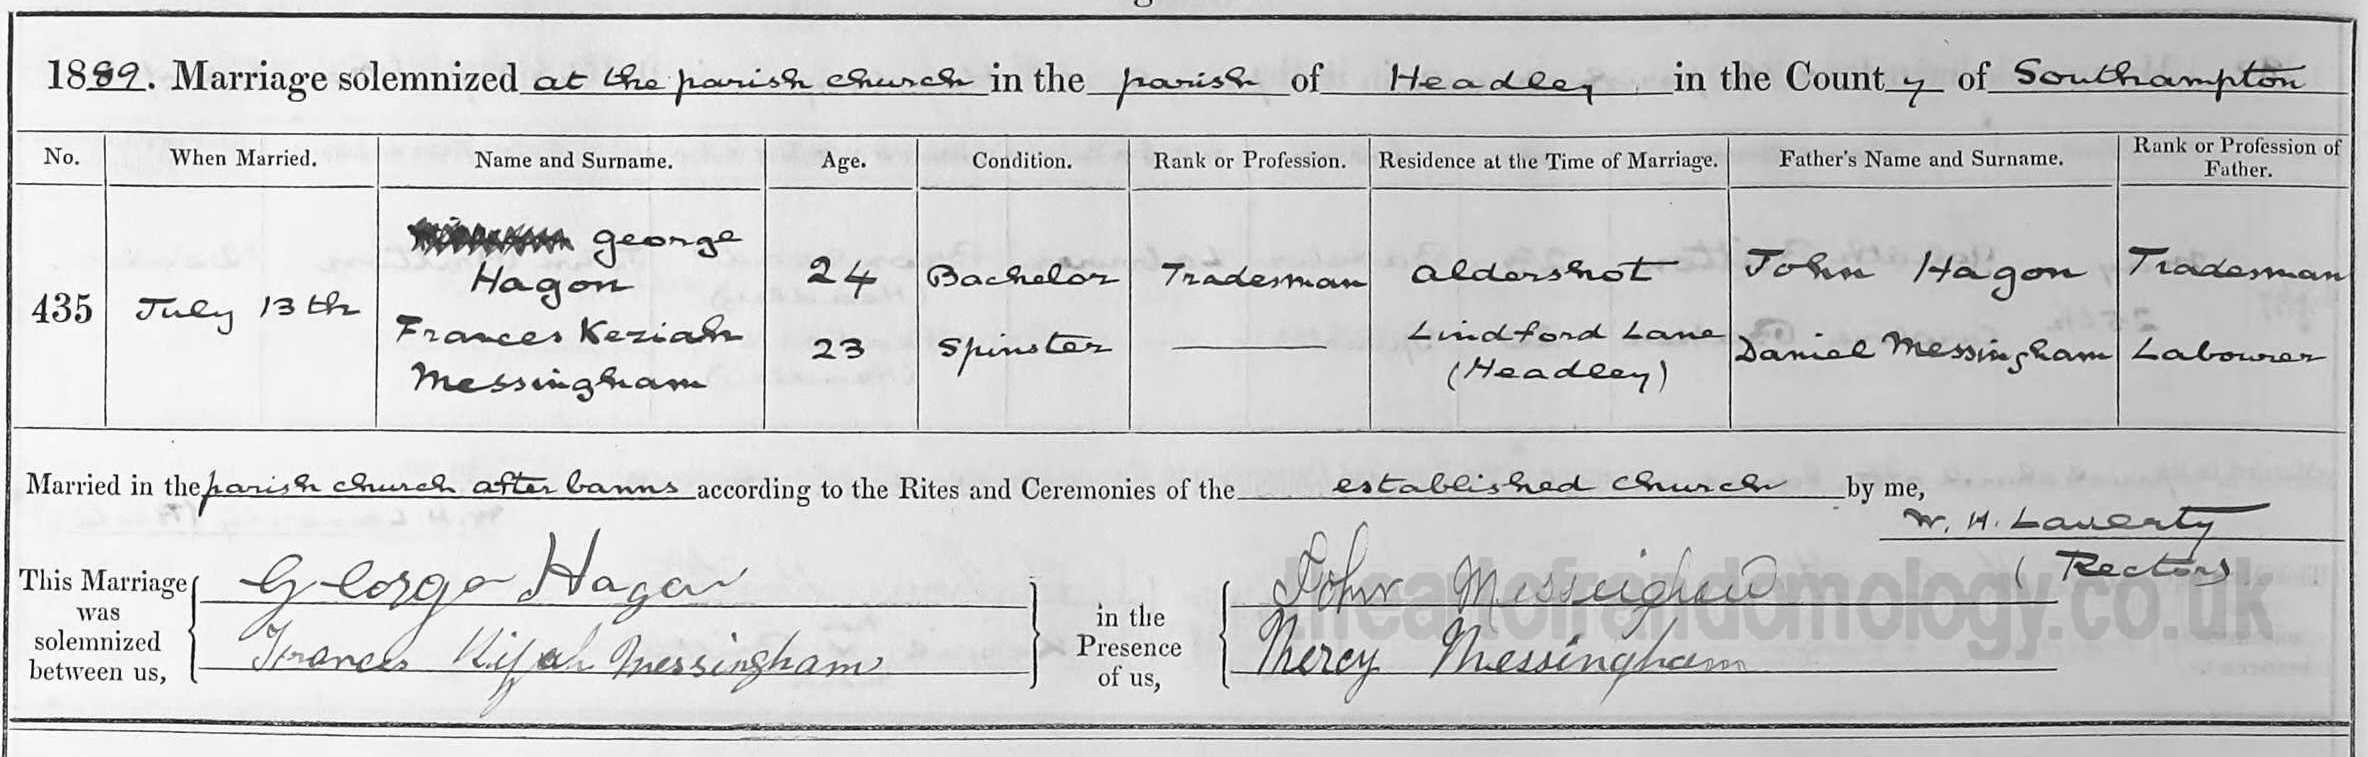 1889. Marriage solemnized at the parish church in the parish of Headley in the County of Southampton
No. When Married. Name and Surname. Age. Condition. Rank or Profession. Residence at the Time of Marriage. Father's Name and Surname. Rank or Profession of Father.
435 July 13th
George Hagon 24 Bachelor Tradesman Aldershot John Hagon Tradesman
Frances Keziah Messingham 23 Spinster Lindford Lane (Headley) Daniel Messingham Labourer
Married in the parish church after banns according to the Rites and Ceremonies of the established church by me,
W. H. Laverty
(Rector)
This Marriage was solemnized between us,
George Hagon
Frances Kizah Messingham
in the Presence of us,
John Messingham
Mercy Messingham
theartofrandomology.co.uk